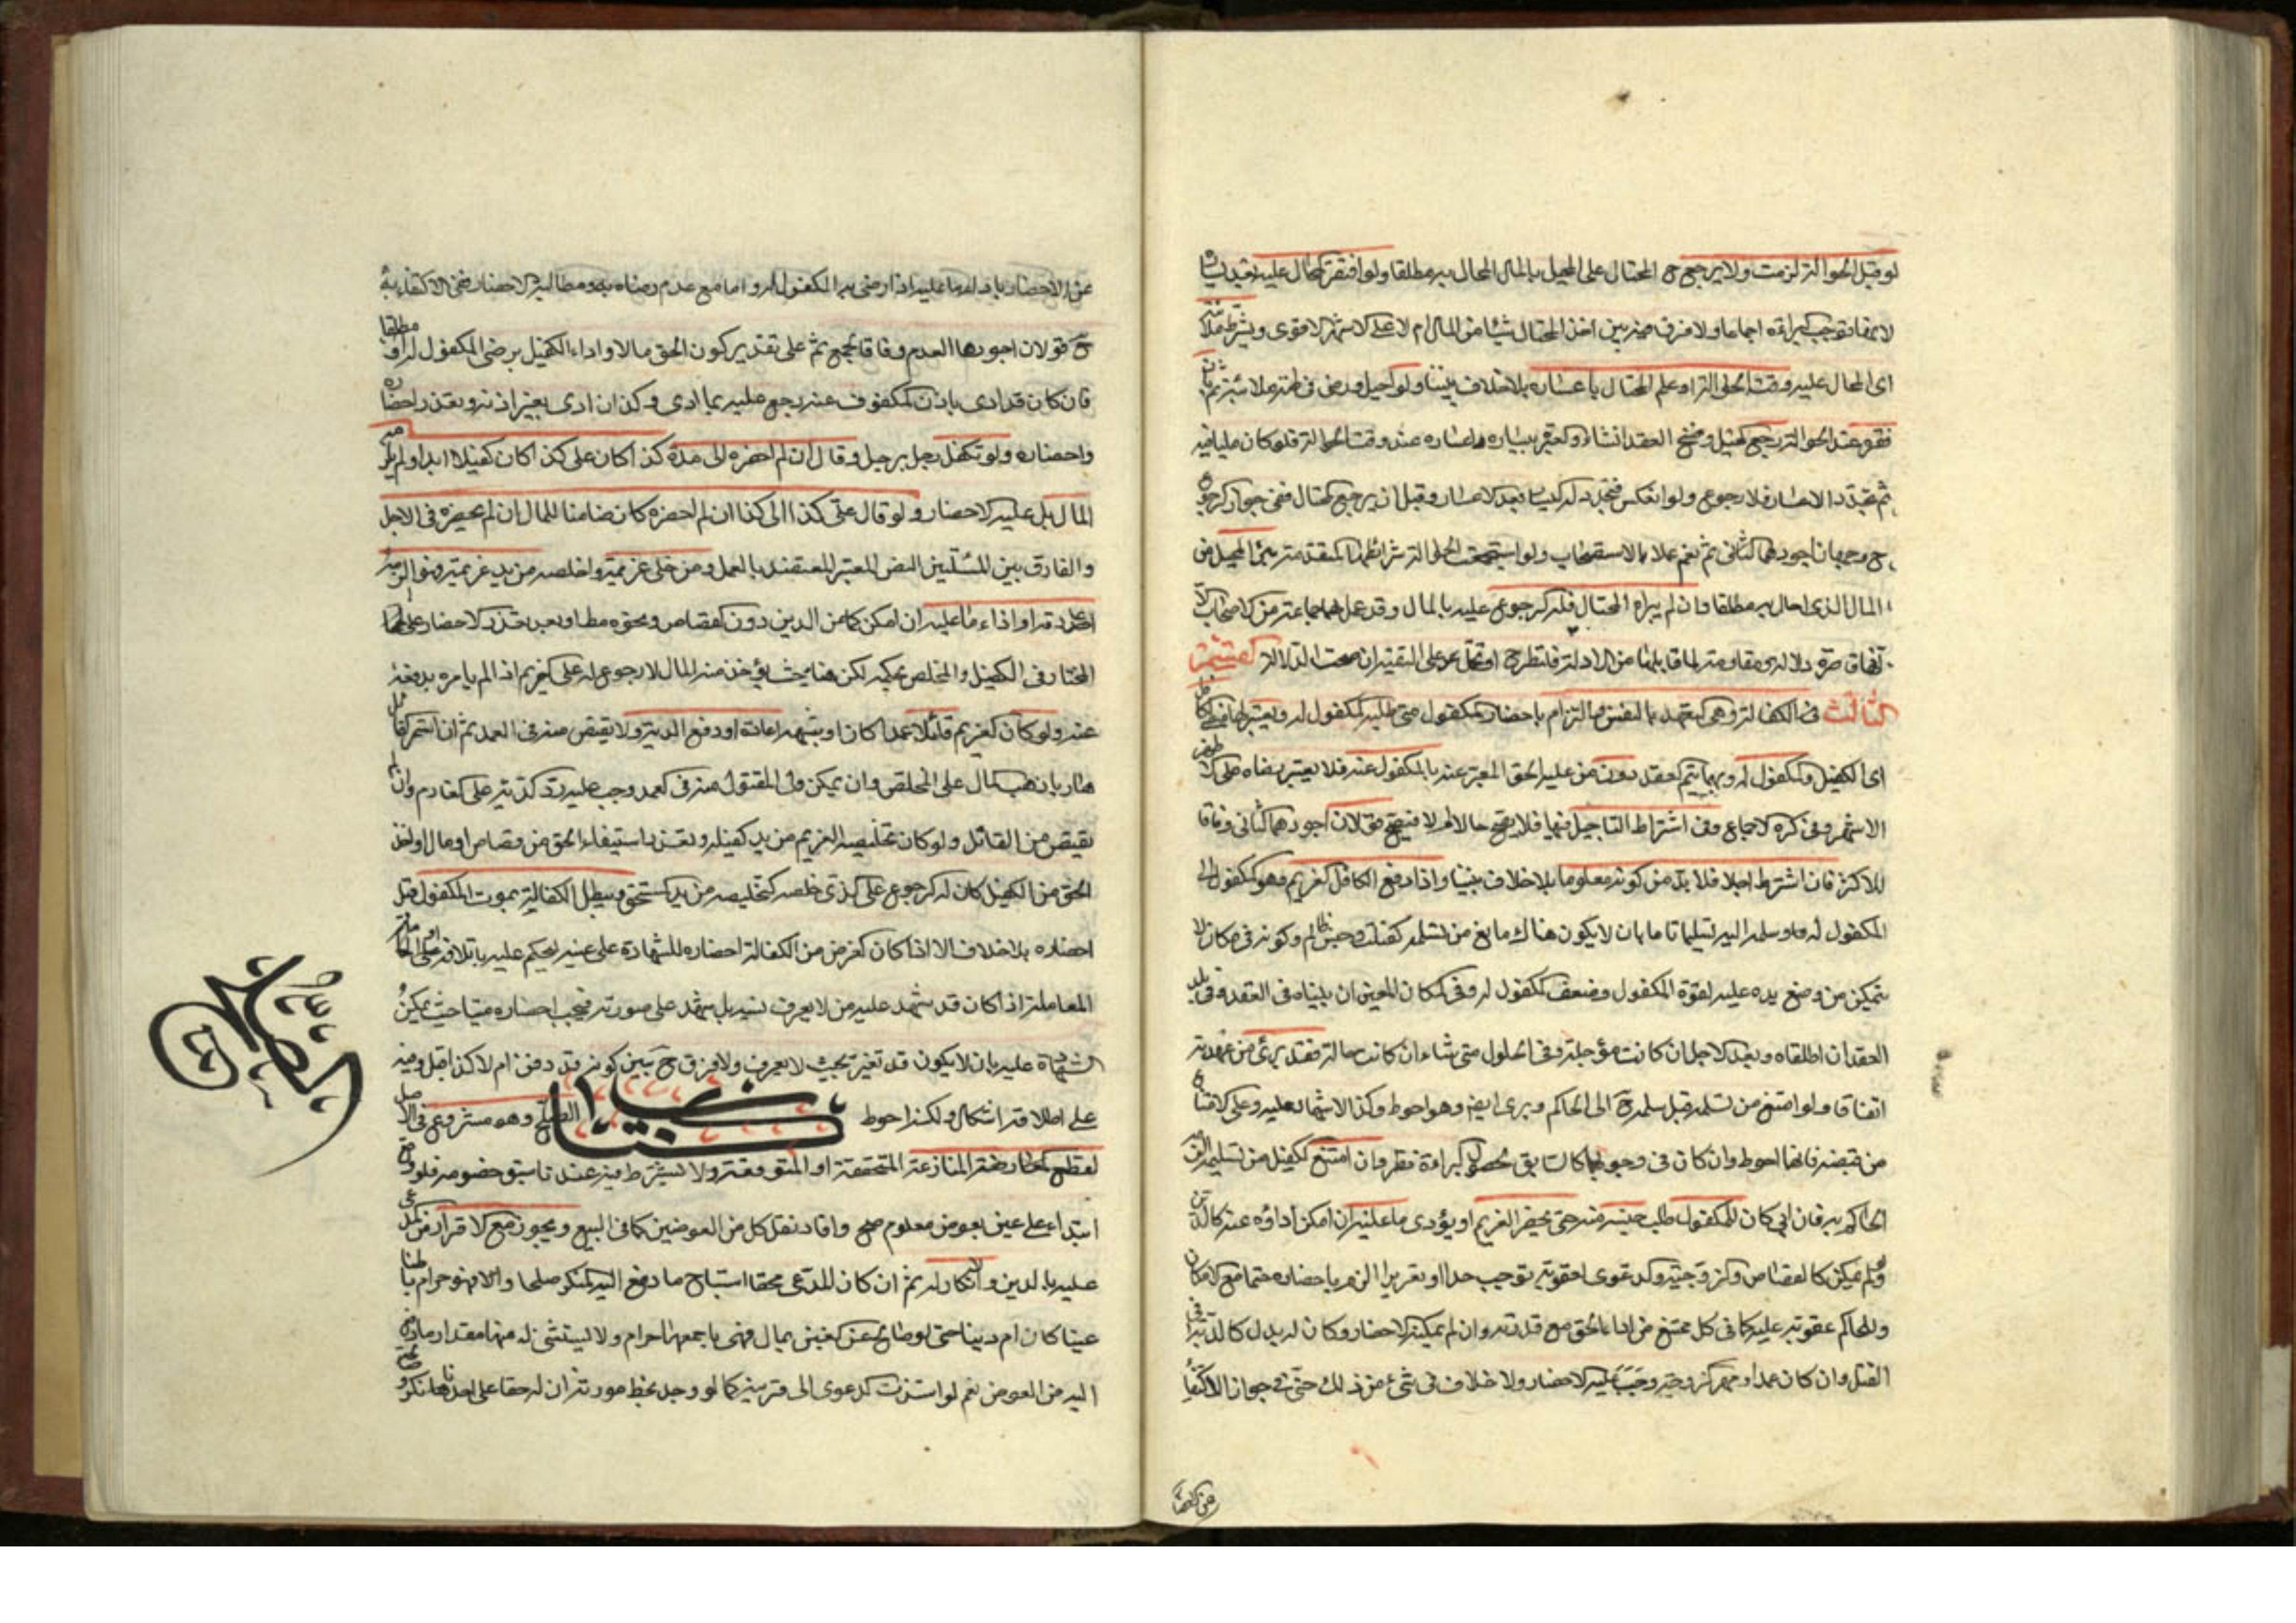 لو قبل الحوالة لزمت ولا يرجع ح المحتال على المحيل بالمال المحال به مطلقا ولو افتقر المحال عليه بعد يساره
اجماعا ولا فرق فيه بين اخذ المحتال شيئا من المال ام لا على الاشهر الاقوى ويشترط ملاءته
اى المحال عليه وقت الحوالة او علم المحتال باعساره بلا خلاف بيننا ولو احيل ورضى ثم بان
فقره عند الحوالة رجع المحيل وفسخ العقد انشاء والمعتبر يساره واعساره عند وقت الحوالة فلو كان مليا فيه
ثم تجدد الاعسار فلا رجوع ولو انعكس فتجدد له اليسار بعد الاعسار وقبل ان يرجع المحتال ففى جواز الرجوع
ح وجهان اجودهما الثانى ثم نعم عملا بالاستصحاب ولو استجمعت الحوالة شرائطها المتقدمة برئ المحيل من
المال الذى احال به مطلقا وان لم يبراه المحتال فله الرجوع عليه بالمال وقد عمل بها جماعة من الاصحاب
القسم
الثالث فى الكفالة وهى التعهد بالنفس والتزام باحضار المكفول متى طلبه المكفول له ويعتبر رضا
اى الكفيل والمكفول له وبهما يتم العقد دون من عليه الحق المعبر عنه بالمكفول عنه فلا يعتبر رضاه على
الاشهر وفى اشتراط التاجيل فيها فلا يصح حالا ام لا فيصح قولان اجودهما الثانى وفاقا
للاكثر فان اشترط اجلا فلا بد من كونه معلوما بلا خلاف بيننا واذا دفع الكافل الغريم وهو المكفول الى
المكفول له وسلمه اليه تسليما تاما بان لا يكون هناك مانع من تسلمه كمتغلب وحبس ظالم وكونه فى مكان لا
يتمكن من وضع يده عليه لقوة المكفول وضعف المكفول له وفى المكان المعين ان بيناه فى العقد وفى بلد
العقد ان اطلقاه وبعد الاجل ان كانت مؤجلة وفى الحلول متى شاء ان كانت حالة فقد برئ من عهدته
اتفاقا ولو امتنع من تسلمه قبل سلمه الى الحاكم وبرى ايضا وهو احوط وكذا الاشهاد عليه وعلى الامتناع
من قبضه فانهما احوط وان كان فى وجوبهما كالسابق لحصول البراءة نظر وان امتنع الكفيل من تسليمه الزمه
الحاكم به فان ابى كان للمكفول طلب حبسه منه حتى يحضر الغريم او يؤدى ما عليه ان امكن اداؤه عنه كالدين
ولو لم يمكن كالقصاص والزوجية والدعوى لعقوبة توجب حدا او تعزيرا الزم باحضاره حتما مع الامكان
وللحاكم عقوبته عليه كما فى كل ممتنع من اداء الحق مع قدرته وان لم يمكنه الاحضار وكان له بدل كالدية فى
القتل وان كان عمدا ومهر الزوجة وجب عليه الاحضار ولا خلاف فى شئ من ذلك حتى فى جواز الاكتفاء
عن الاحضار باداء ما عليه اذا رضى به المكفول له واما مع عدم رضاه به ومطالبته الاحضار ففى الاكتفاء به
ح قولان اجودهما العدم وفاقا لجمع ثم على تقدير كون الحق مالا واداء الكفيل برضى المكفول له او مطلقا
فان كان قد ادى باذن المكفول عنه رجع عليه بما ادى وكذا ان ادى بغير اذنه وتعذر احضاره
واحضاره ولو تكفل رجل برجل وقال ان لم احضره الى مدة كذا كان على كذا كان كفيلا ابدا ولم يلزمه
المال بل عليه الاحضار ولو قال على كذا الى كذا ان لم احضره كان ضامنا للمال ان لم يحضره فى الاجل
والفارق بين المسئلتين النص المعتبر المعتضد بالعمل ومن خلى غريمه واخلصه من يد غريمه الزم
اعادته او اداء ما عليه ان امكن كما فى الدين دون القصاص ونحوه مطا وبعد تعذر الاحضار على
المختار فى الكفيل والمخلص بحكمه لكن هنا حيث يؤخذ منه المال لا رجوع له على الغريم اذا لم يامره بدفعه
عنه ولو كان الغريم قاتلا عمدا كان او شبهه اعاده او دفع الدية ولا يقتص منه فى العمد ثم ان استمر القاتل
هاربا ذهب المال على المخلص وان تمكن ولى المقتول منه فى العمد وجب عليه رد الدية على الغارم وان لم
يقتص من القاتل ولو كان تخليصه الغريم من يد كفيله وتعذر استيفاء الحق من قصاص او مال واخذ
الحق من الكفيل كان له الرجوع على الذى خلصه كتخليصه من يد المستحق وتبطل الكفالة بموت المكفول قبل
احضاره بلا خلاف الا اذا كان الغرض من الكفالة احضاره للشهادة على عينه ليحكم عليه باتلافه او
المعاملة اذا كان قد شهد عليه من لا يعرف نسبه بل شهد على صورته فيجب احضاره ميتا حيث يمكن
الشهادة عليه بان لا يكون قد تغير بحيث لا يعرف ولا فرق ح بين كونه قد دفن ام لا كذا قيل وفيه
على اطلاقه اشكال ولكنه احوط كتاب الصلح وهو مشروع فى الاصل
لقطع المنازعة المتحققة او المتوقعة ولا يشترط فيه عندنا سبق خصومة فلو وقع
ابتداء على عين بعوض معلوم صح وافاد نقل كل من العوضين كما فى البيع ويجوز مع الاقرار من المدعى
عليه بالدين والانكار له ثم ان كان المدعى محقا استباح ما دفع اليه المنكر صلحا والا فهو حرام باطنا
عينا كان ام دينا حتى لو صالح عن العين بمال فهى باجمعها حرام ولا يستثنى له منها مقدار ما دفع
اليه من العوض نعم لو استندت الدعوى الى قرينة كما لو وجد بخط مورثه ان له حقا على احد فانكر
الصلح